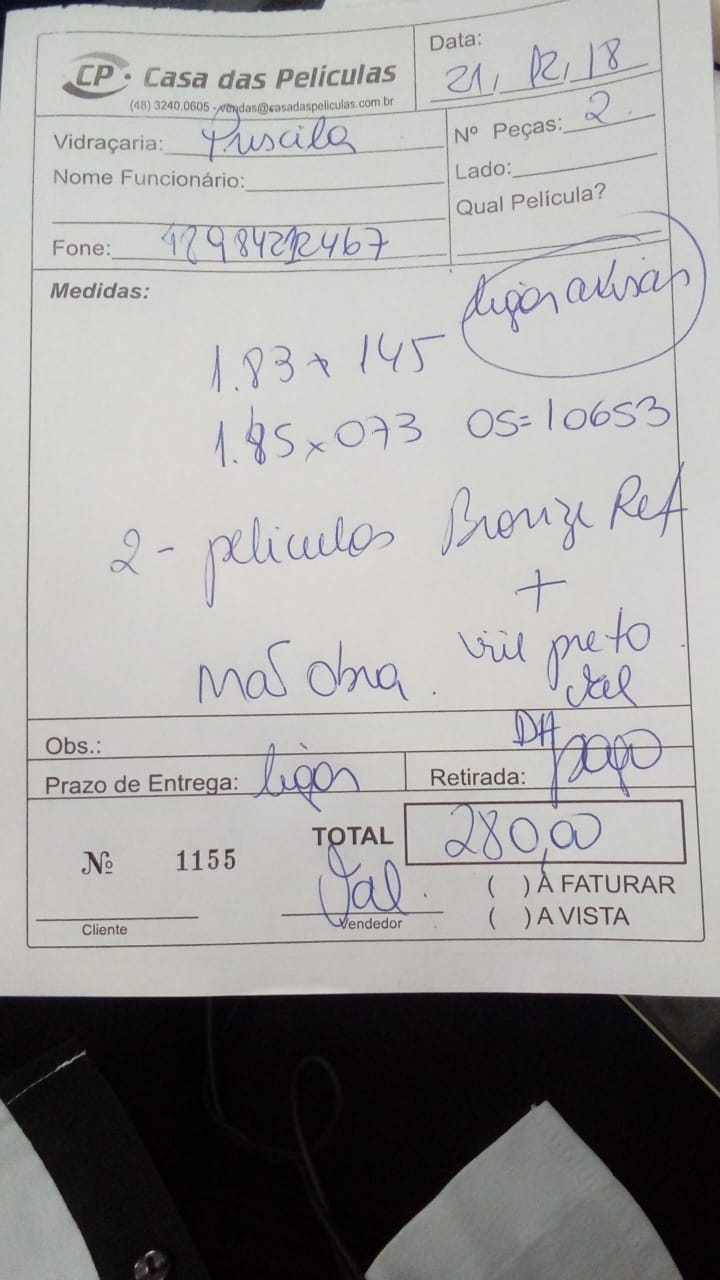 CP. Casa das Películas
(48) 3240.0605 - vendas@casadaspeliculas.com.br
Data: 21, 12, 18
Vidraçaria: Priscila
Nº Peças: 2.
Nome Funcionário:
Lado:
Qual Película?
Fone:
Medidas:
ligar avisar
1.83 x 145
1.85 x 073 OS=10653
2 - peliculas Bronze Ref
+
mão obra. preto
Val
Obs.:
DH
Prazo de Entrega: ligar
Retirada: pago
Nº 1155
TOTAL 280,00
Val.
( ) À FATURAR
( ) A VISTA
Cliente
Vendedor